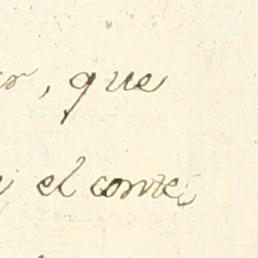 , que
el conte